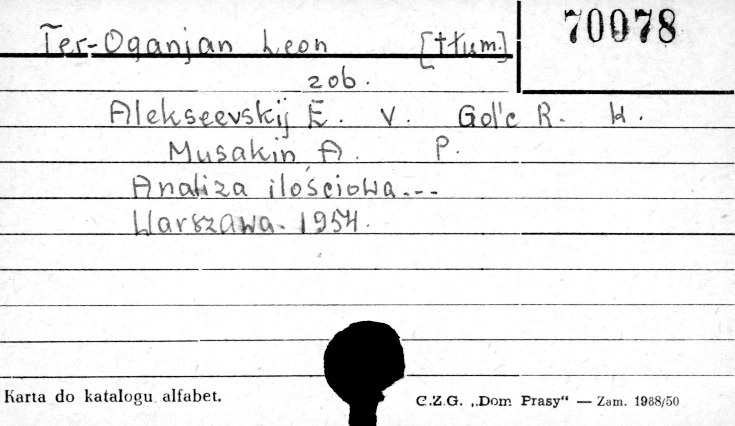 Ter-Oganjan Leon [tłum.]
70078
zob.
Alekseevskij E. V. Gol'c R. K.
Musakin A. P.
Analiza ilościowa...
Warszawa. 1954.
Karta do katalogu alfabet.
C.Z.G. „Dom Prasy“ — Zam. 1968/50